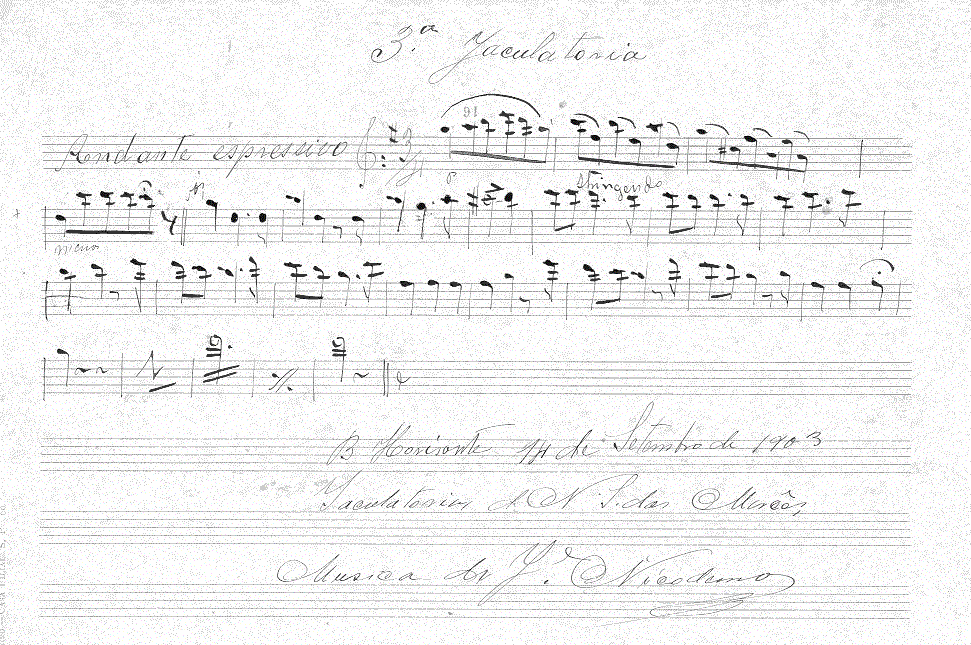 3.ª Jaculatoria
Andante espressivo
Stringendo
meno
B Horisonte 14 de Setembro de 1903
Jaculatorias d N. S. das Mercês,
Musica de J.e Nicodemo